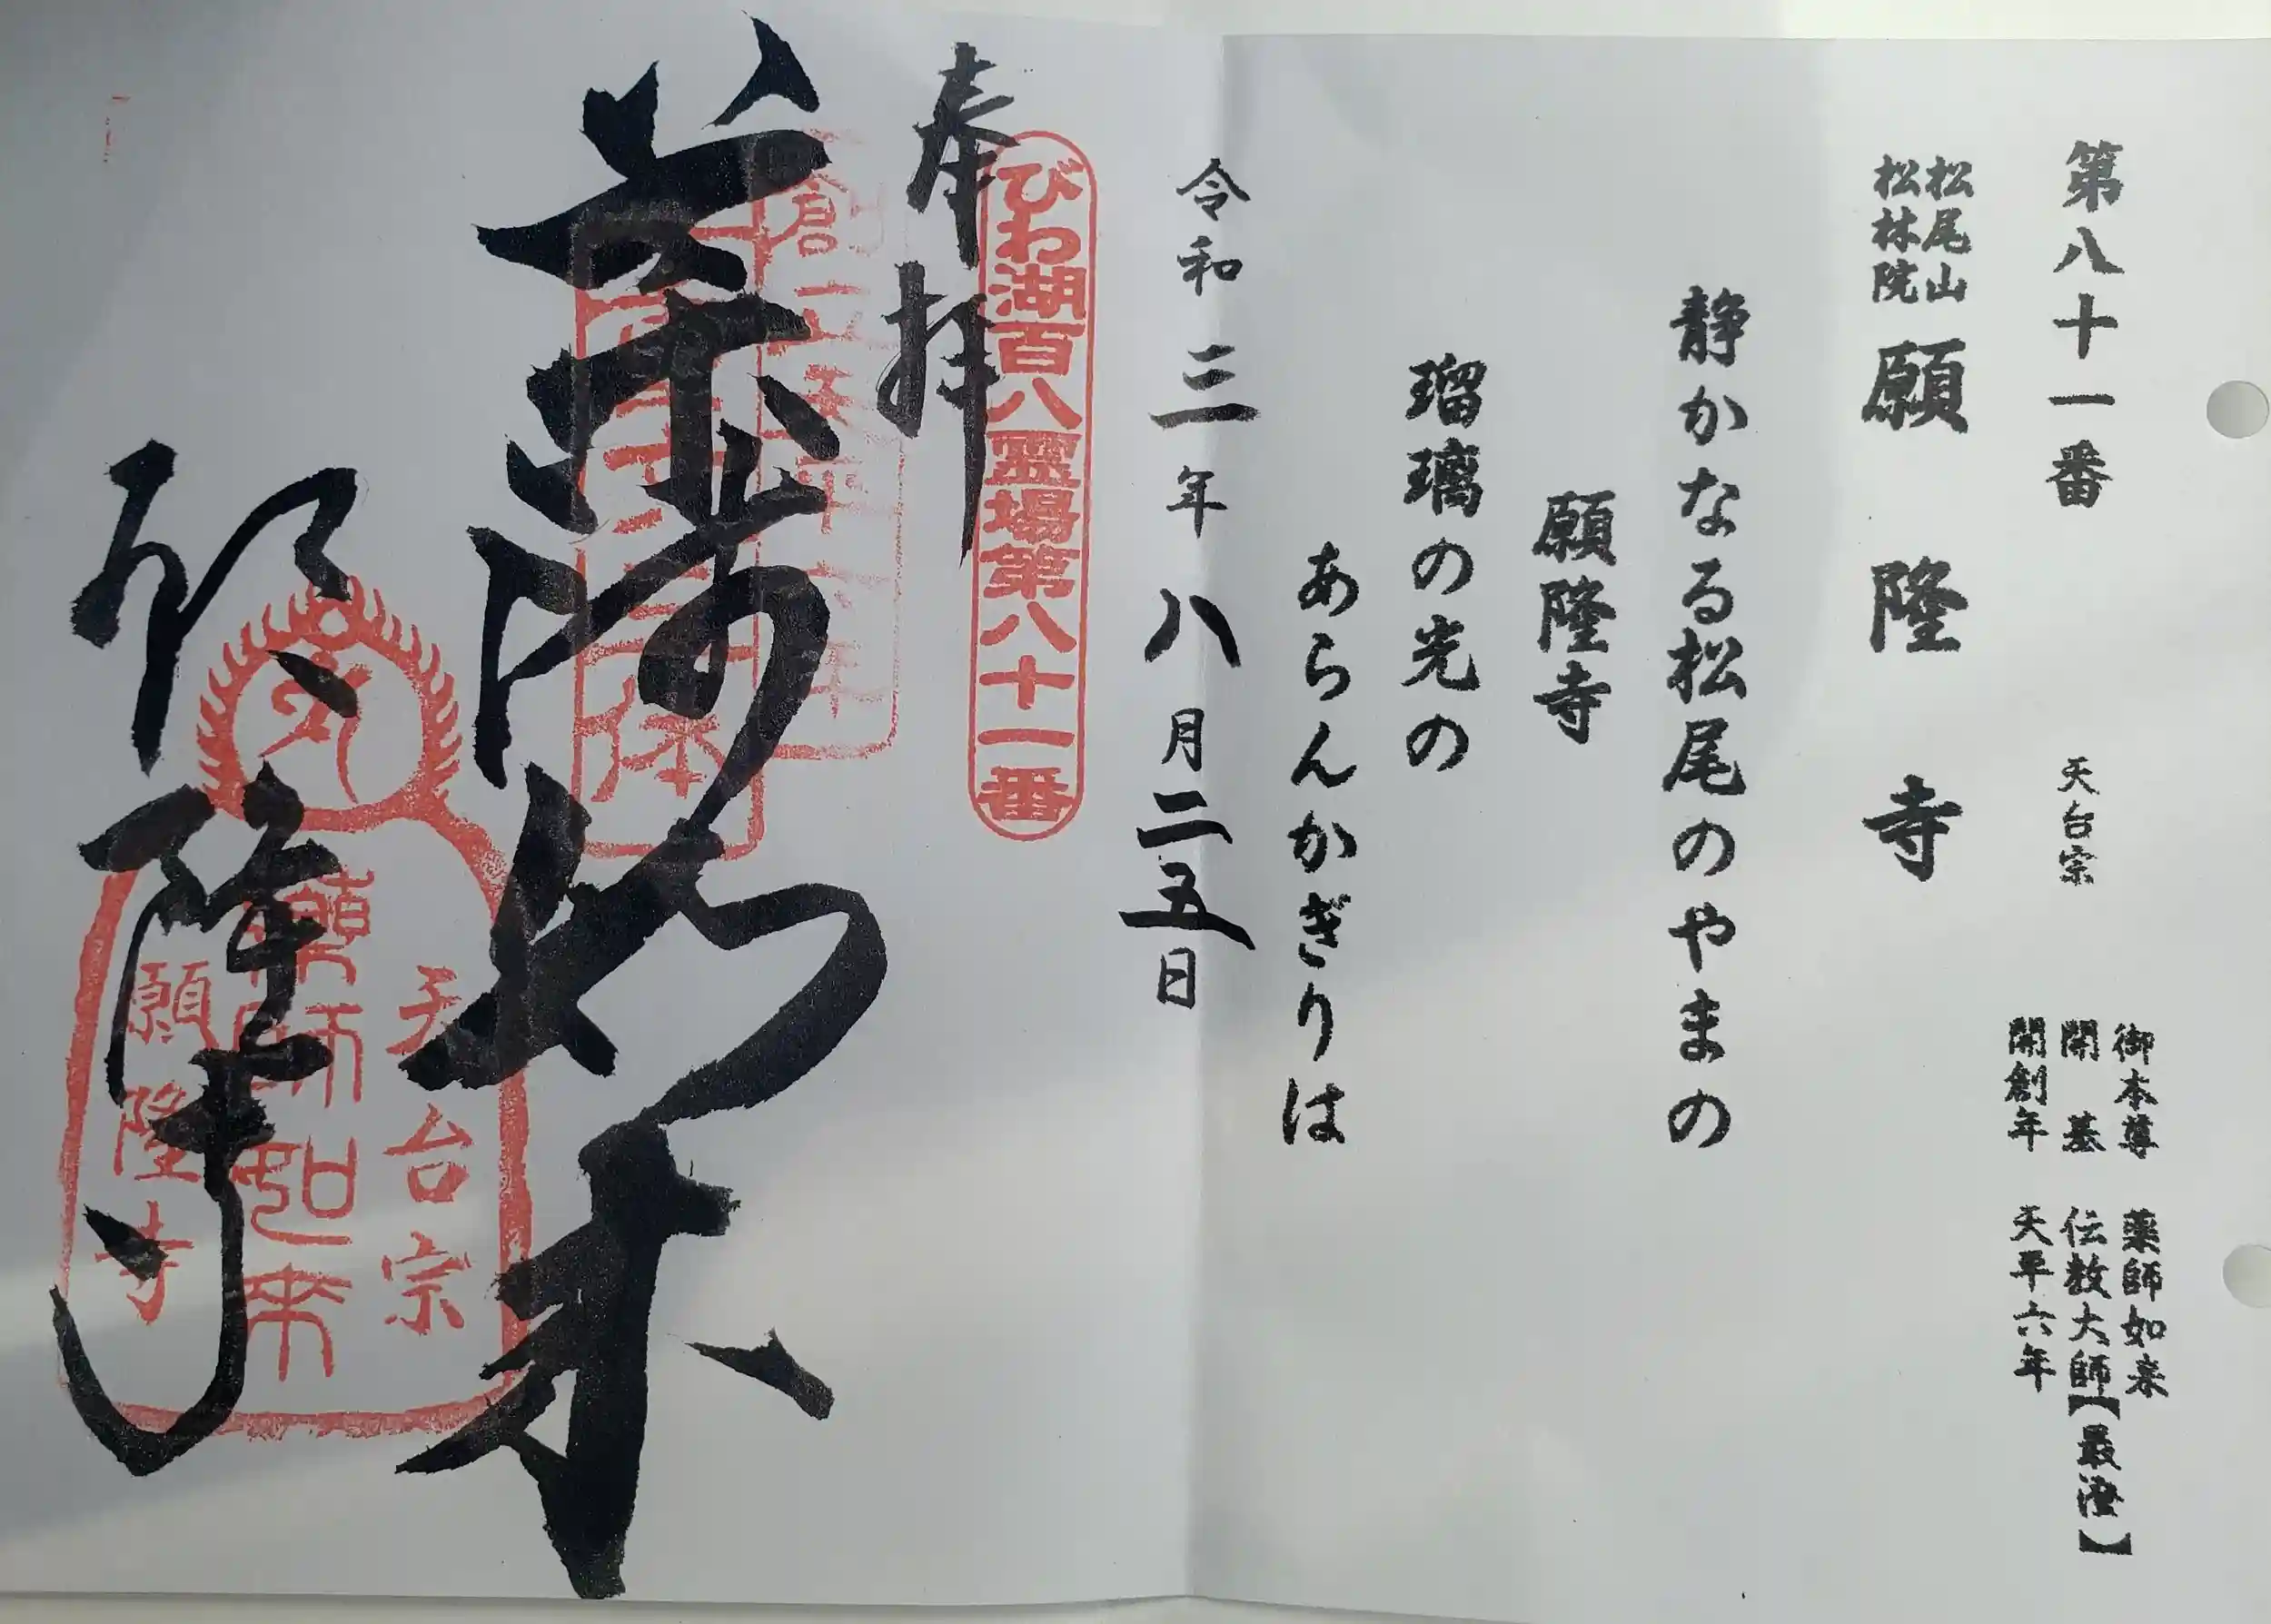 第八十一番 天台宗
御本尊 薬師如来
開 基 伝教大師【最澄】
開創年 天平六年
松尾山
松林院
願隆寺
静かなる松尾のやまの
願隆寺
瑠璃の光の
あらんかぎりは
令和三年八月二五日
びわ湖百八霊場第八十一番
奉拝
薬師如来
願隆寺
天台宗
薬師如来
願隆寺